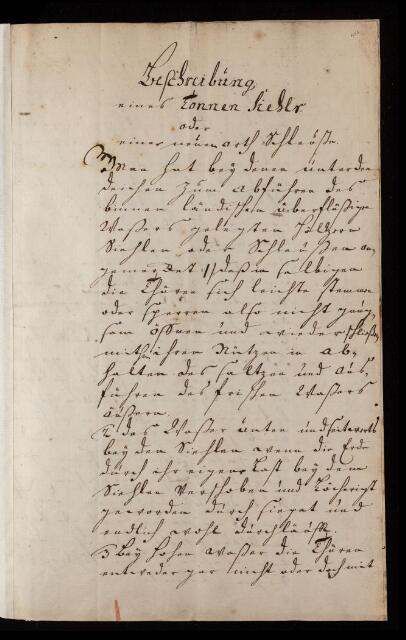 Beschreibung
eines Tonnen Siehls
oder
einer neuen arth Schleüße.
Man hat bey denen unter den
deichen zum abführen des
binnen ländischen überflüßigen
Waßers gelegten Höltzern
Siehlen oder Schleußen an
gemercket 1) daß in selbigen
die Thüren sich leichte stemmen
oder sperren also nicht
sam öffnen und wieder schließen,
mithin ihren Nutzen in ab-
halten des saltzen und aus-
führen des frischen Waßers
äußern.
2 das Waßer unten und seitwerts
bey den Siehlen wenn die Erde
durch ihr eigene Last bey dem
Siehlen verschoben und Löcherigt
geworden durch siepet und
endlich wohl durchläufft.
3 Bey hohen waßer die Thüren
entweder gar nicht oder doch mit